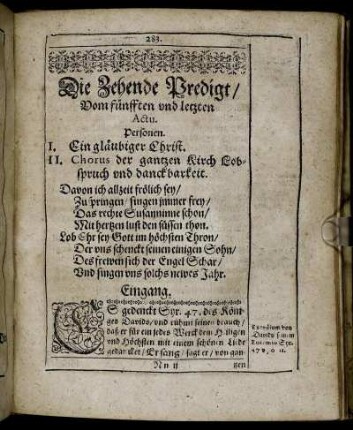 283.
Die Zehende Predigt/
Vom fünfften vnd letzten
Actu.
Personen.
I. Ein gläubiger Christ.
II. Chorus der gantzen Kirch Lob-
spruch vnd danckbarkeit.
Davon ich allzeit frölich sey/
Zu springen singen jmmer frey/
Das rechte Susaninne schon/
Mit hertzen lust den süssen thon.
Lob Ehr sey Gott im höchsten Thron/
Der vns schenckt seinen einigen Sohn/
Des frewen sich der Engel Schar/
Vnd singen vns solchs newes Jahr.
Eingang.
ES gedenckt Syr. 47. des Köni-
ges Davids/ vnd rühmt seinen brauch/
daß er für ein jedes Werck dem Heiligen
vnd Höchsten mit einem schönen Liede
gedancket/ Er sang/ sagt er/ von gan-
Nn ij
tzen
Davids
Syr.